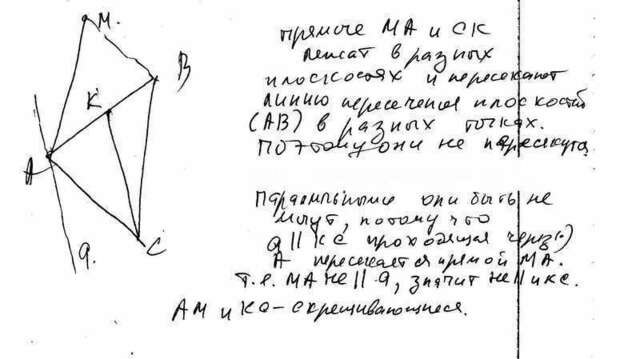 M.
B
K
A
C
q.
прямые МА и СК
лежат в разных
плоскостях и пересекают
линию пересечения плоскостей
(АВ) в разных точках.
Поэтому они не пересекутся
Параллельными они быть не
могут, потому что
q || КС проходящая через
А пересекается прямой МА.
т.е. МА не || q, значит не || и КС.
АМ и КС – скрещивающиеся.